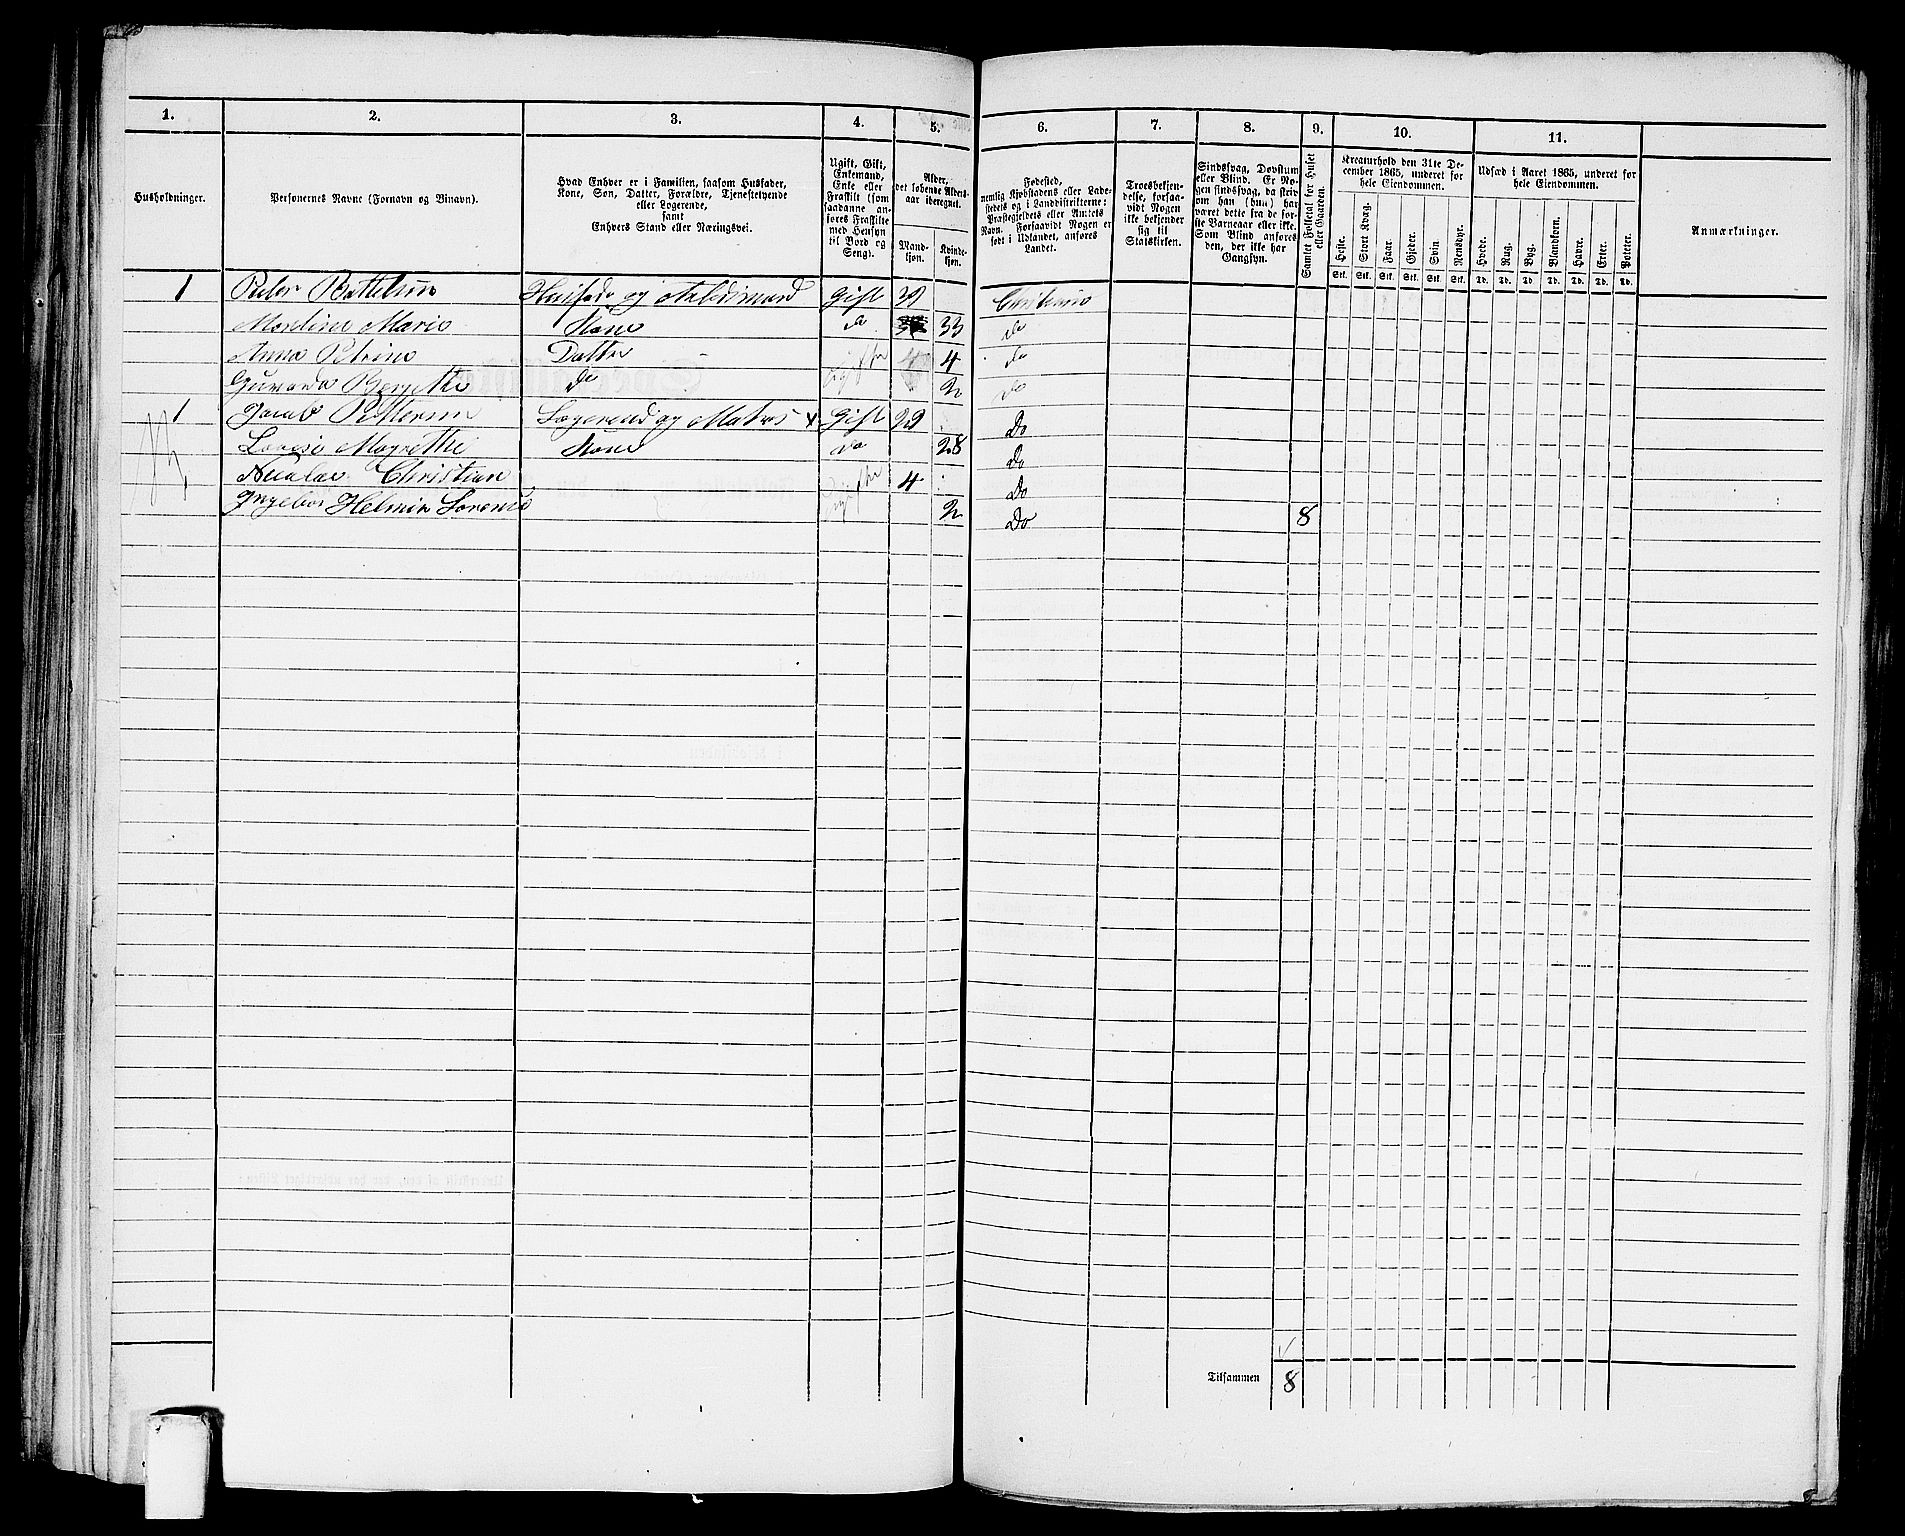 1. 2. 3. 4. 5. 6. 7. 8. 9. 10. 11.
Husholdninger.
Personernes Navne (Fornavn og Binavn).
Hvad Enhver er i Familien, saasom Husfader,
Kone, Søn, Datter, Forældre, Tjenestetyende
eller Logerende,
samt
Enhvers Stand eller Næringsvei.
Ugift, Gift,
Enkemand,
Enke eller
Fraskilt (som
saadanne an-
føres Fraskilte
med Hensyn
til Bord og
Seng).
Alder,
det løbende Alders-
aar iberegnet.
Mand-
kjøn.
Kvinde-
kjøn.
Fødested,
nemlig Kjøbstadens eller Lade-
stedets og i Landdistrikterne:
Præstegjeldets eller Amtets
Navn. Forsaavidt Nogen er
født i Udlandet, anføres
Landet.
Troesbekjen-
delse, forsaa-
vidt Nogen
ikke bekjender
sig til
Statskirken.
Sindssvag, Døvstum
eller Blind. Er No-
gen sindssvag, da skriv
om han (hun) har
været dette fra de før-
ste Barneaar eller ikke.
Som Blind anføres
den, der ikke har
Gangsyn.
Samlet Folketal for Huset
eller Gaarden.
Kreaturhold den 31te De-
cember 1865, underet for
hele Eiendommen.
Heste. Stort Kvæg. Faar. Gjeder. Svin. Rensdyr.
Stk. Stk. Stk. Stk. Stk. Stk.
Udsæd i Aaret 1865, underet for
hele Eiendommen.
Hvede. Rug. Byg. Blandkorn. Havre. Erter. Poteter.
Td. Td. Td. Td. Td. Td. Td.
Anmærkninger.
1 Peter Gift
Marie Kone do 33 do
Anna Petrine Datter ugifte 4 do
do 2 do
1 Jacob Pettersen Logerende og Matros x Gift 29 Do
Magrethe Kone do 28 Do
Christian ugifte 4 Do
2 Do 8
Tilsammen 8